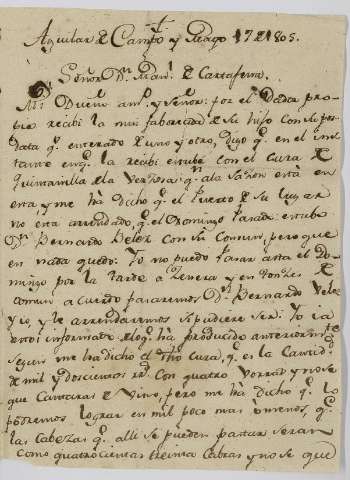 Aguilar de Campó y Mayo 17 1805.
Señor Dn. Man.l de Cartafena.
Mi Dueño am.o y Señor: por el Dador pro
pio recibi la mui faborecida de Su hijo con Su pos
data q.e enterado de uno y otro, digo q.e en el ins
tante en q.e la recibi estube con el Cura de
Quintanilla de la Verzosa q.n a la Sazon esta en
esta, y me ha dicho q.e el Puerto de Su lugar
no esta arrendado q.e el Domingo pasado estube
Dn. Bernardo Velez con Su Comun, pero que
en nada quedo. Yo no puedo pasar asta el Do
mingo por la tarde a Zenera y en tonzes de
comun acuerdo pasaremos, Dn. Bernardo Velez
y io, y le arrendaremos Si pudiere Ser. Yo ia
estoi informado de loq.e ha producido anteriorm.te
Segun me ha dicho el dho Cura, q.e es la Cantid.d
de mil y doscientos r.s Con quatro y no se
que Cantaras de Vino, pero me ha dicho q.e lo
podremos lograr en mil poco mas omenos, q.e
las Cabezas q.e alli se pueden pastar seran
como quatrocientas treinta Cabras y no se que